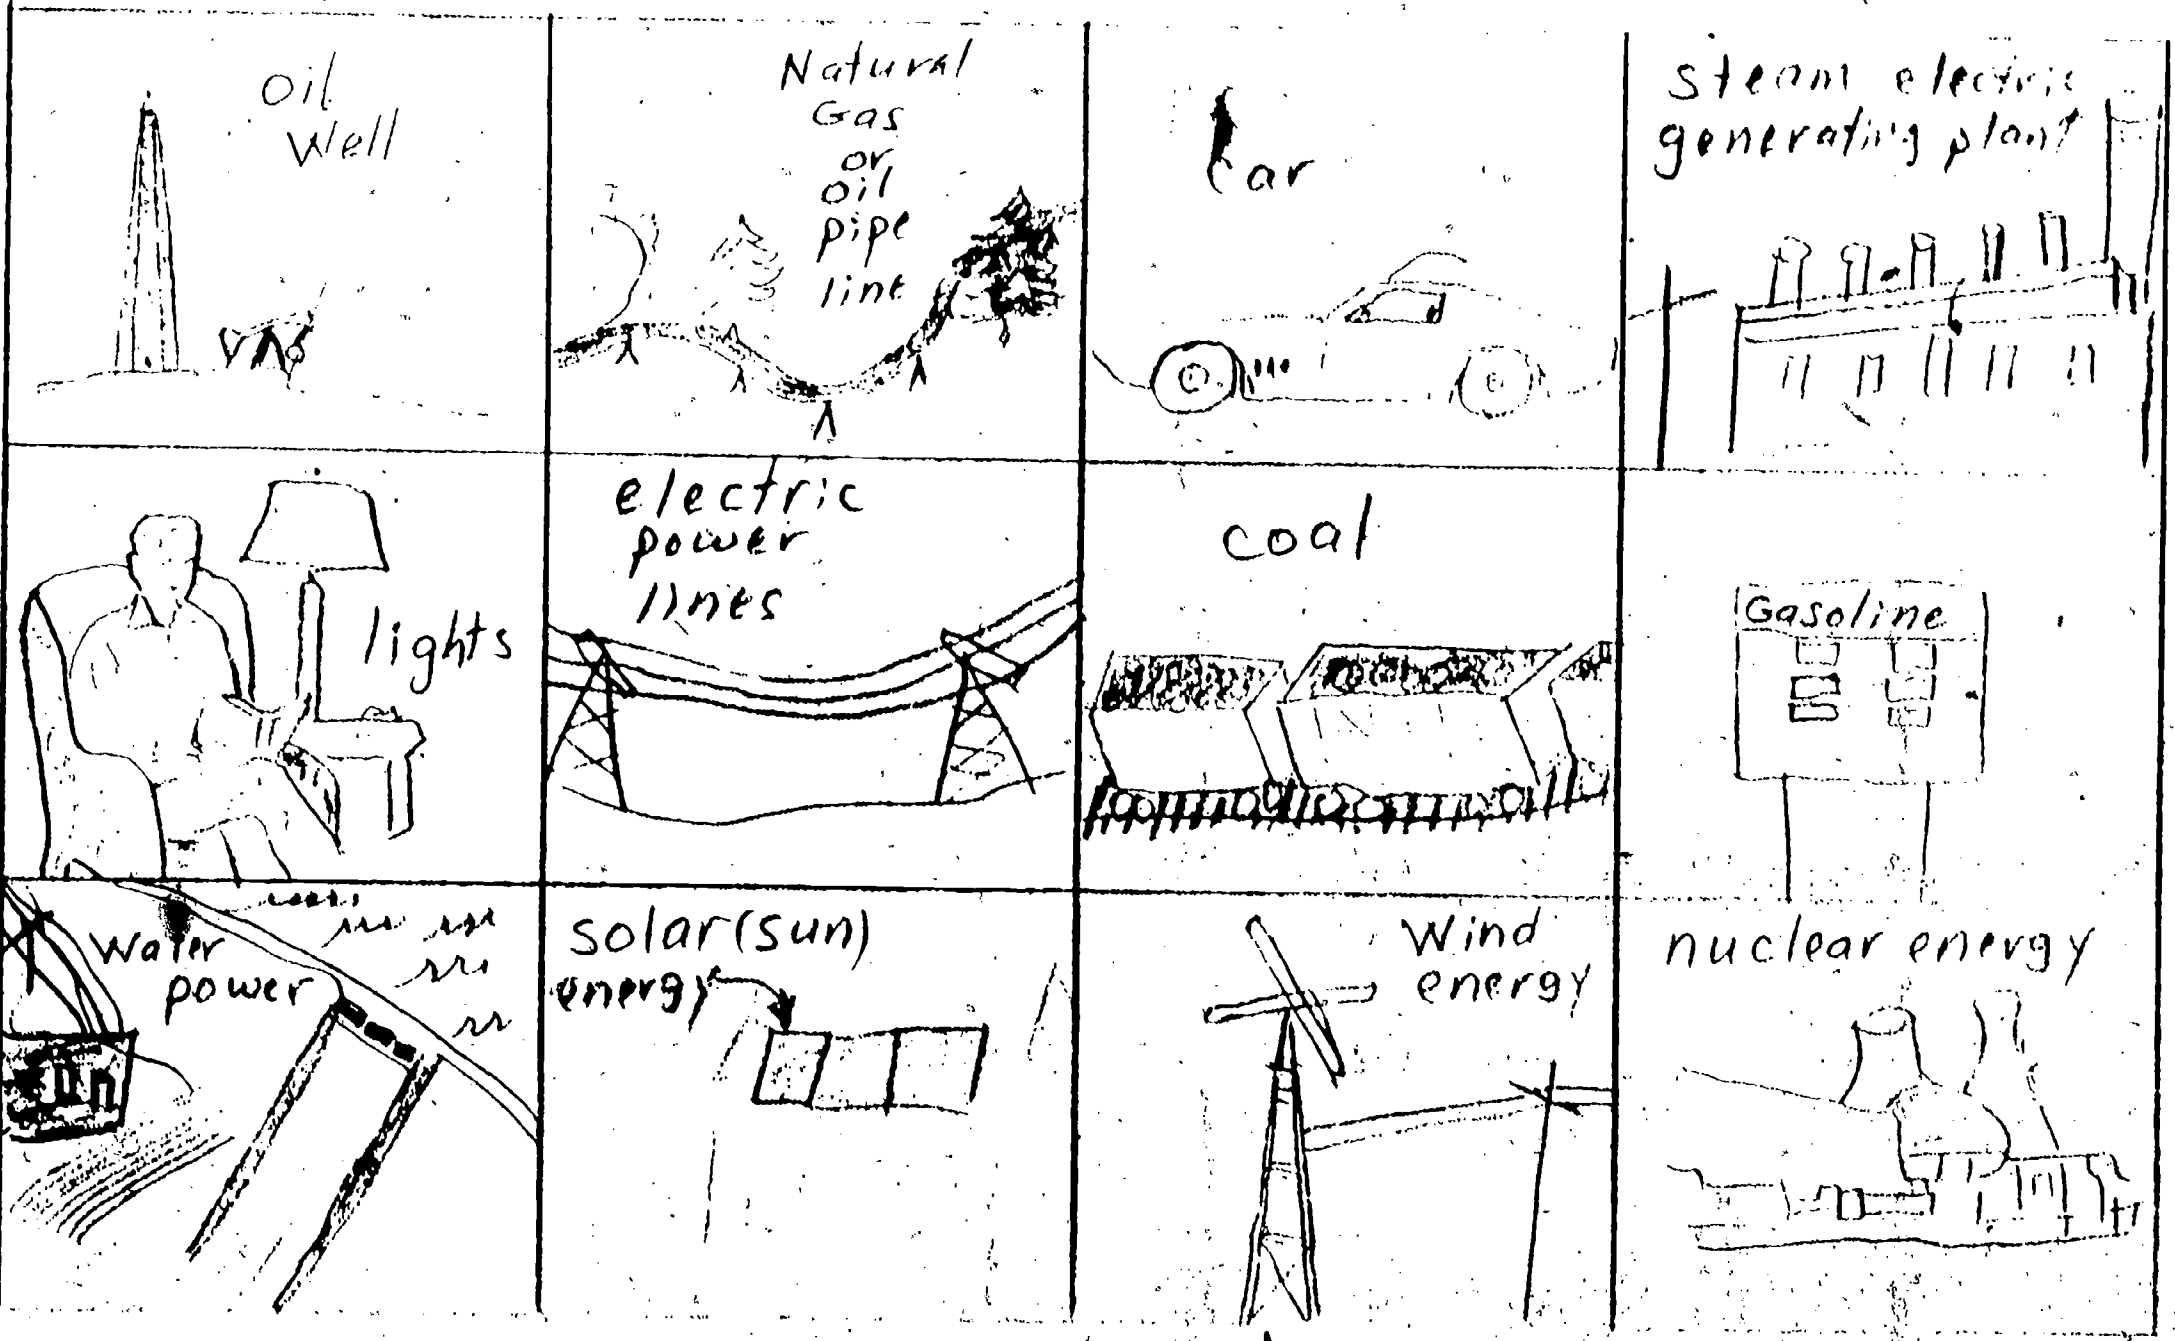 Oil
Well
Natural
Gas
or
oil
pipe
line
Car
steam electric
generating plant
lights
electric
power
lines
coal
Gasoline
Water
power
solar (sun)
energy
Wind
energy
nuclear energy